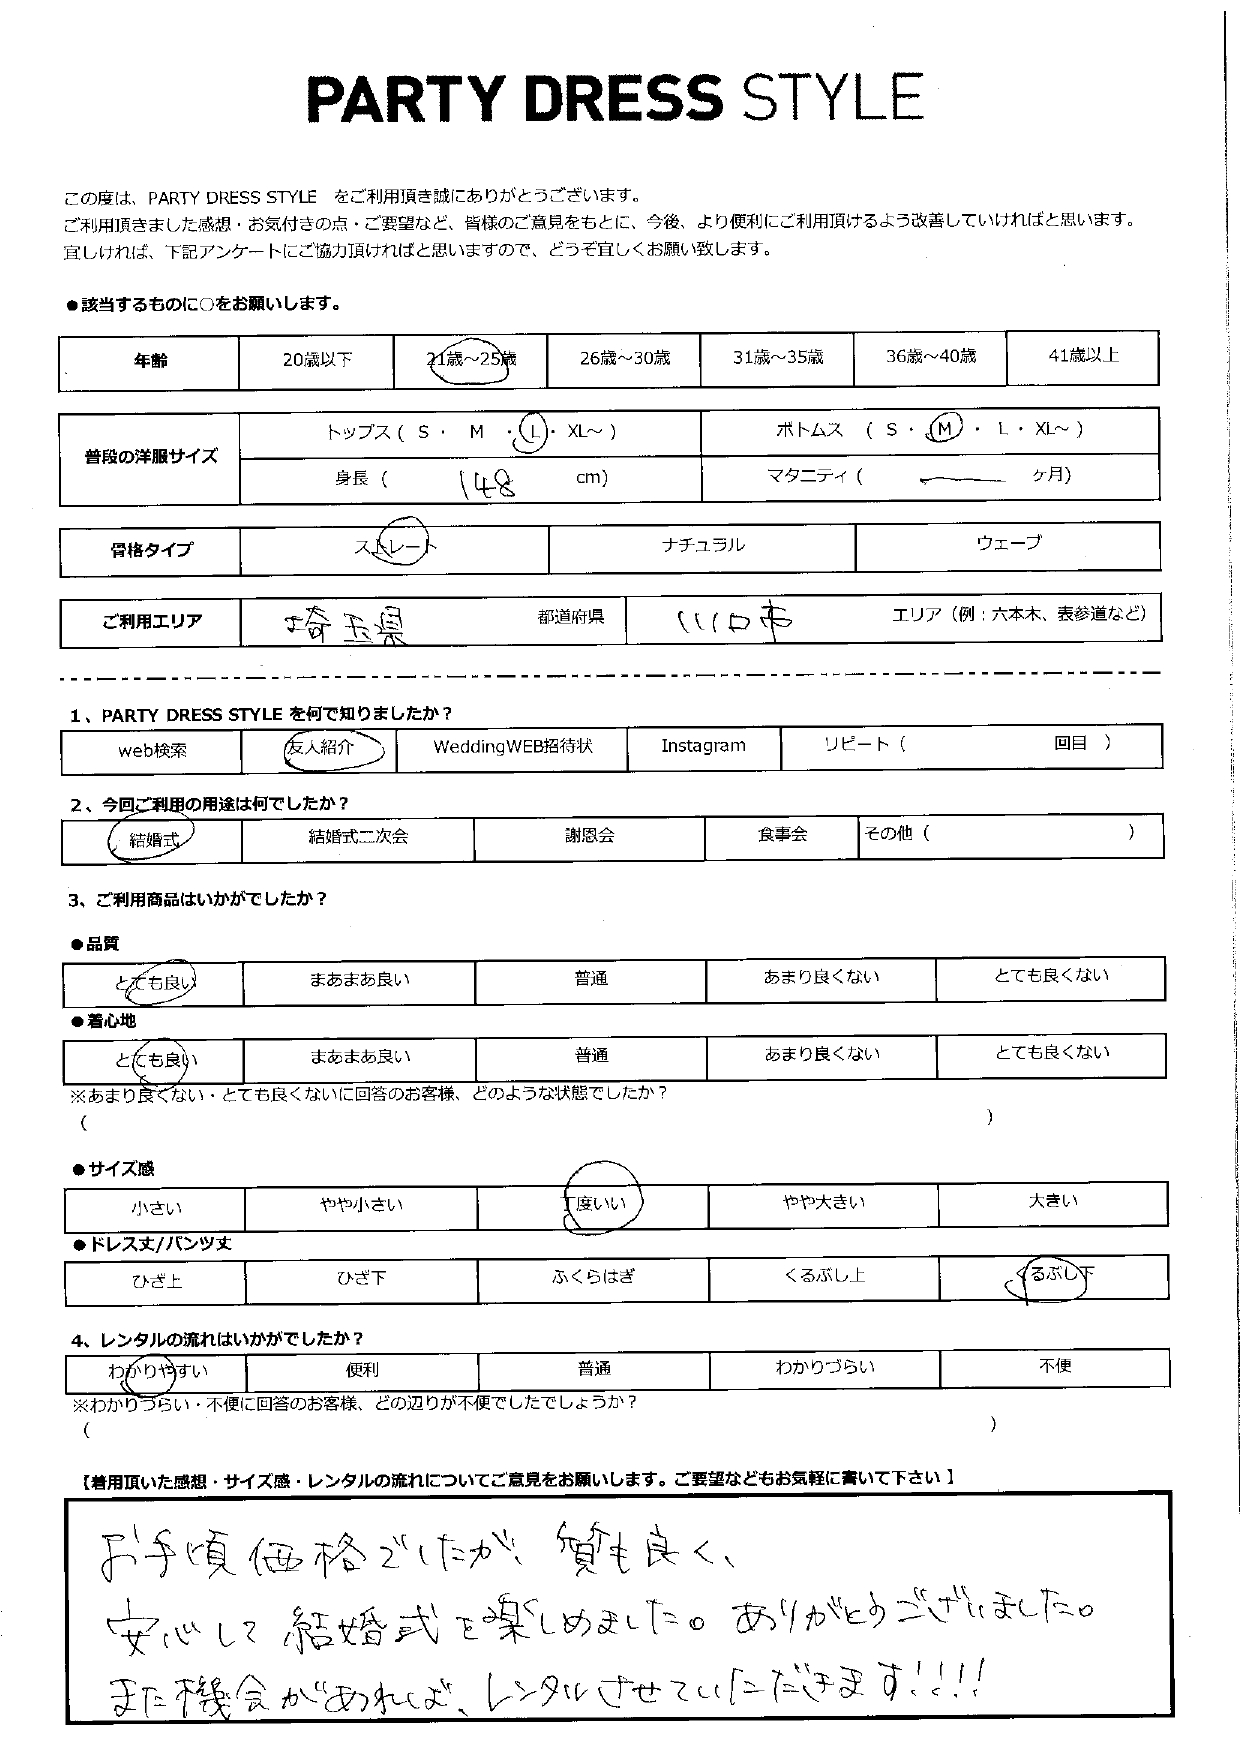 PARTY DRESS STYLE
この度は、PARTY DRESS STYLE をご利用頂き誠にありがとうございます。
ご利用頂きました感想・お気付きの点・ご要望など、皆様のご意見をもとに、今後、より便利にご利用頂けるよう改善していければと思います。
宜しければ、下記アンケートにご協力頂ければと思いますので、どうぞ宜しくお願い致します。
●該当するものに○をお願いします。
年齢 20歳以下 21歳～25歳 26歳～30歳 31歳～35歳 36歳～40歳 41歳以上
普段の洋服サイズ トップス ( S ・ M ・ L ・ XL～ ) ボトムス ( S ・ M ・ L ・ XL～ )
身長 ( 148 cm) マタニティ ( ー ケ月)
骨格タイプ ストレート ナチュラル ウェーブ
ご利用エリア 埼玉県 都道府県 川口市 エリア（例：六本木、表参道など）
1、PARTY DRESS STYLE を何で知りましたか？
web検索 友人紹介 WeddingWEB招待状 Instagram リピート ( 回目 )
2、今回ご利用の用途は何でしたか？
結婚式 結婚式二次会 謝恩会 食事会 その他 ( )
3、ご利用商品はいかがでしたか？
●品質
とても良い まあまあ良い 普通 あまり良くない とても良くない
●着心地
とても良い まあまあ良い 普通 あまり良くない とても良くない
※あまり良くない・とても良くないに回答のお客様、どのような状態でしたか？
( )
●サイズ感
小さい やや小さい 丁度いい やや大きい 大きい
●ドレス丈/パンツ丈
ひざ上 ひざ下 ふくらはぎ くるぶし上 くるぶし下
4、レンタルの流れはいかがでしたか？
わかりやすい 便利 普通 わかりづらい 不便
※わかりづらい・不便に回答のお客様、どの辺りが不便でしたでしょうか？
( )
【着用頂いた感想・サイズ感・レンタルの流れについてご意見をお願いします。ご要望などもお気軽に書いて下さい】
お手頃価格でしたが、質も良く、
安心して結婚式を楽しめました。ありがとうございました。
また機会があれば、レンタルさせていただきます!!!!